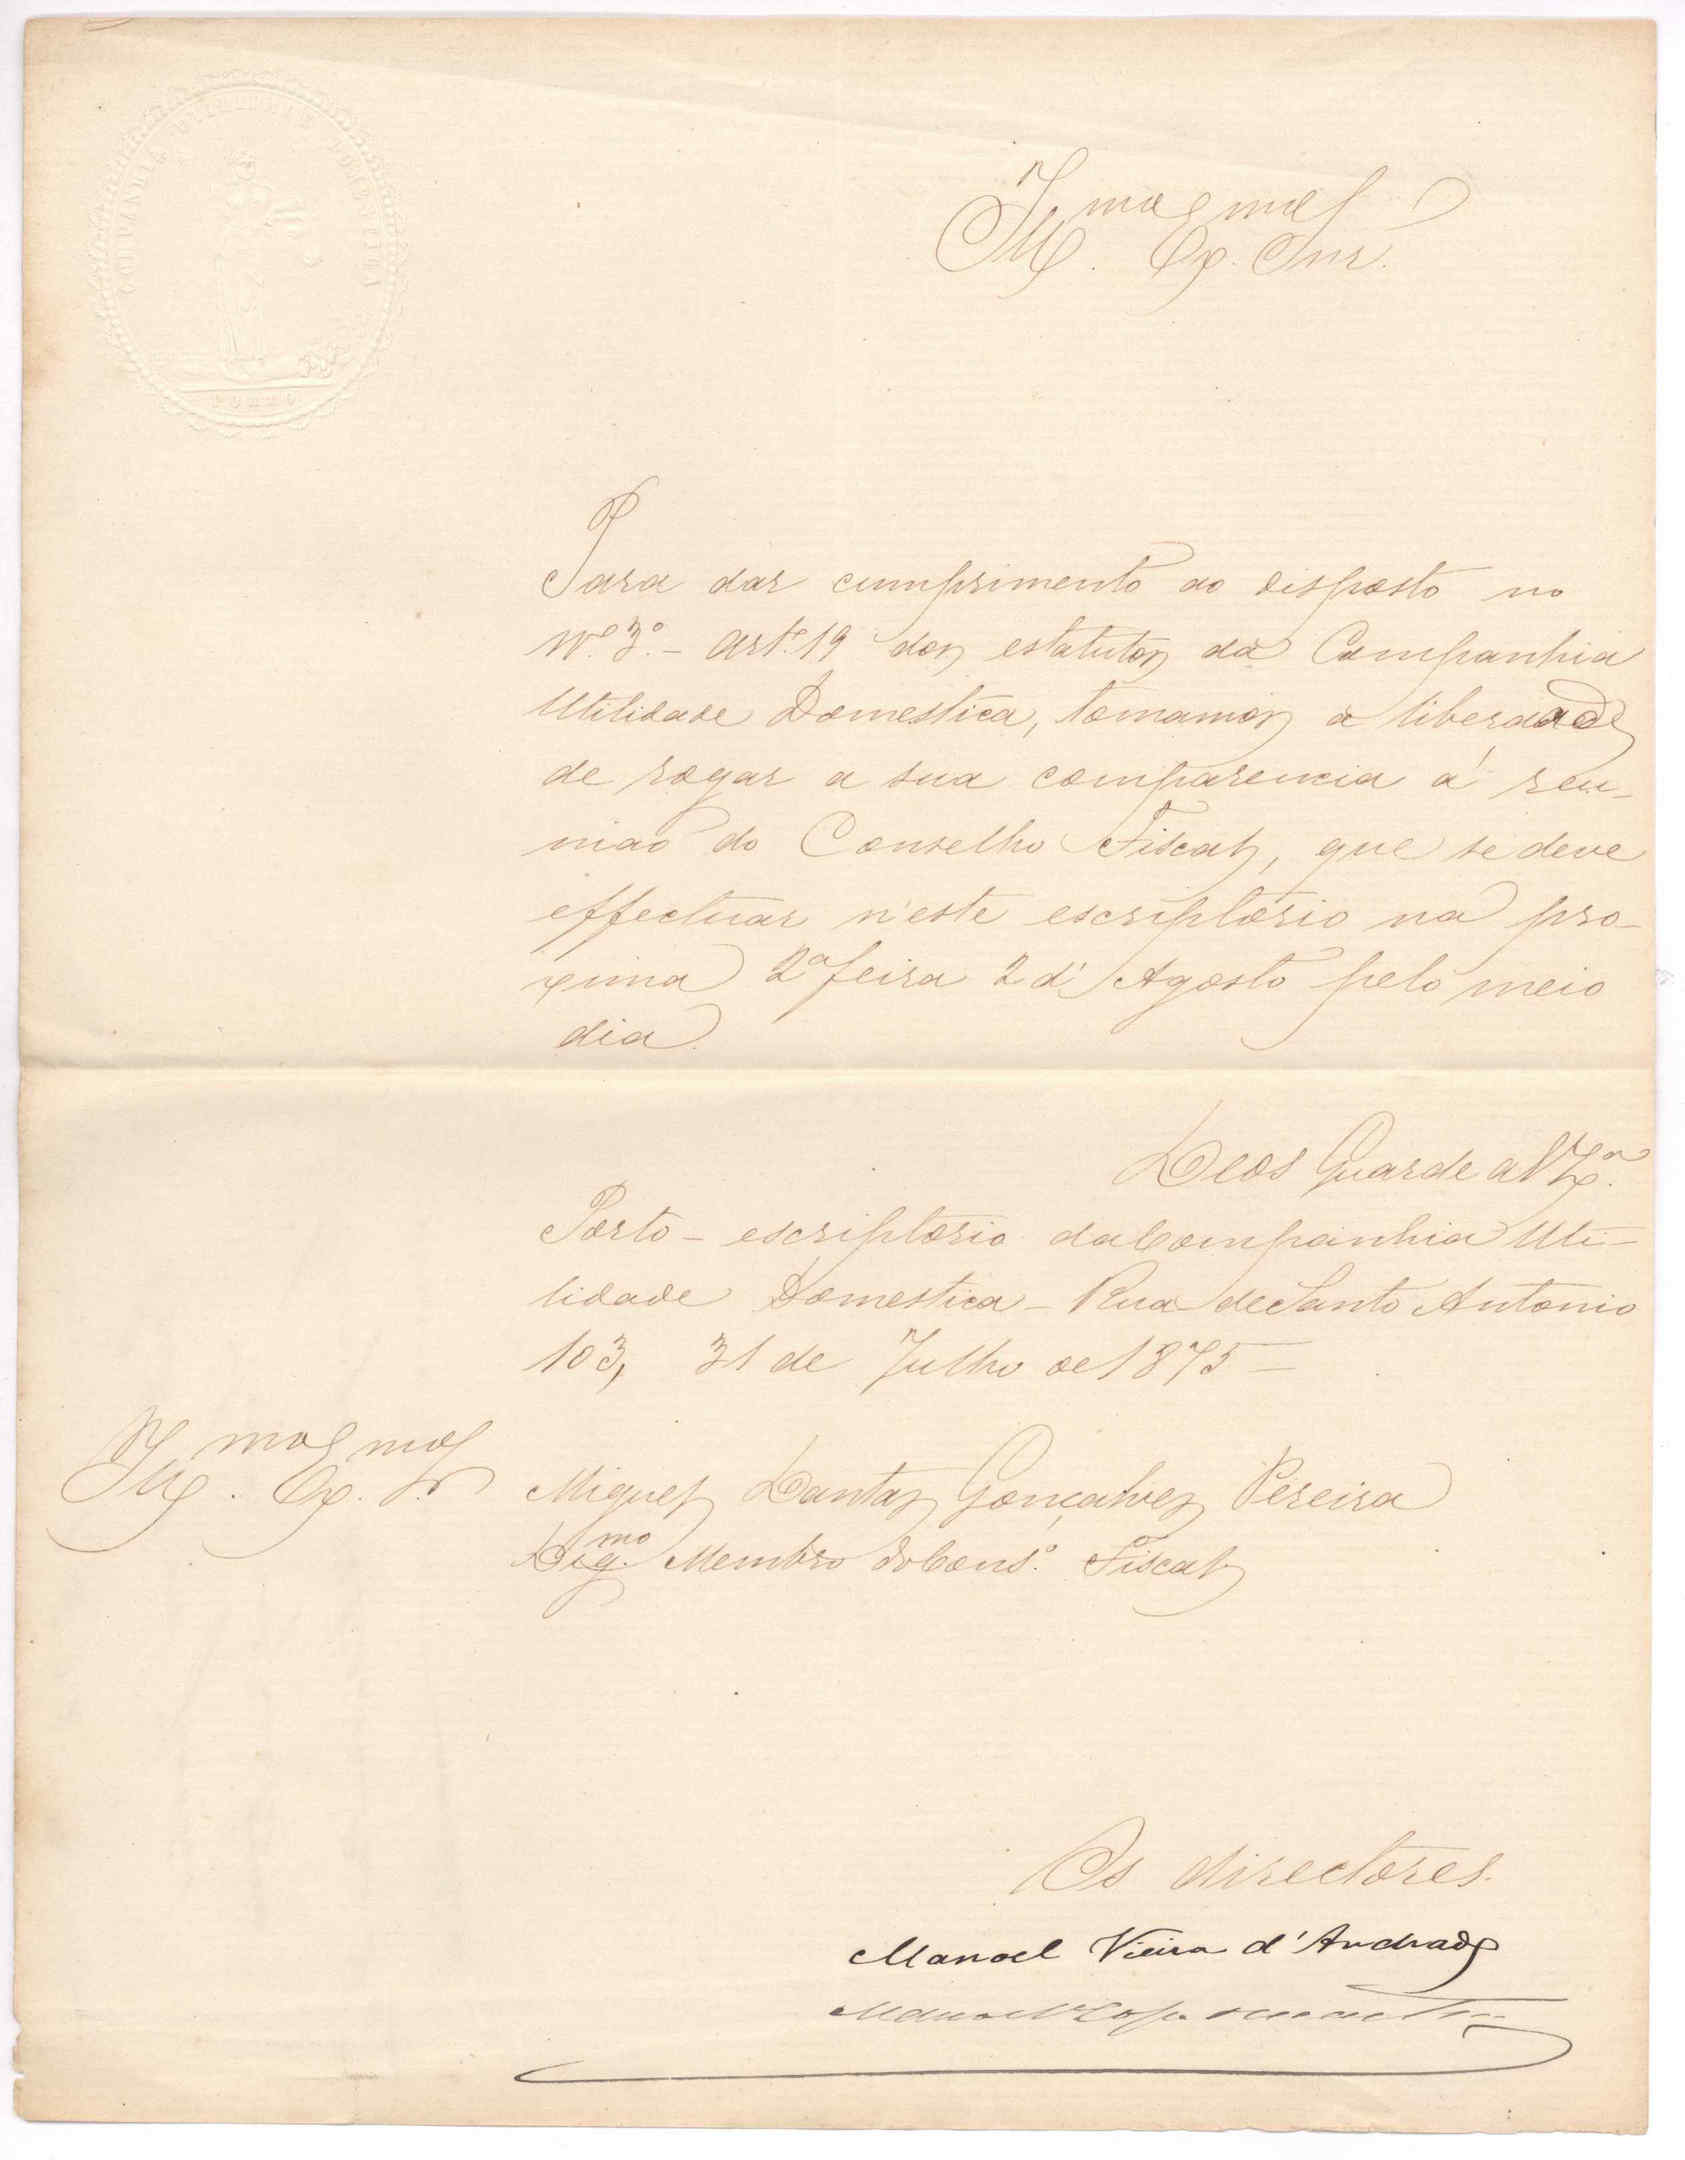 COMPANHIA UTILIDADE DOMESTICA
PORTO
Ill.mo e Ex.mo Snr.
Para dar cumprimento ao disposto no
Nº 3º - Artº 19 dos estatutos da Companhia
Utilidade Domestica, tomamos a liberdade
de rogar a sua comparencia á reu-
nião do Conselho Fiscal, que se deve
effectuar n'este escriptorio na pro-
xima 2ª feira 2 d'Agosto pelo meio
dia.
Deos Guarde a V. Ex.ª
Porto - escriptorio da Companhia Uti-
lidade Domestica - Rua de Santo Antonio
103, 31 de Julho de 1875 -
Ill.mo e Ex.mo Sr. Miguel Dantas Gonçalves Pereira
Dig.mo Membro do Cons.º Fiscal
Os directores.
Manoel Vieira d'Andrade
Manoel